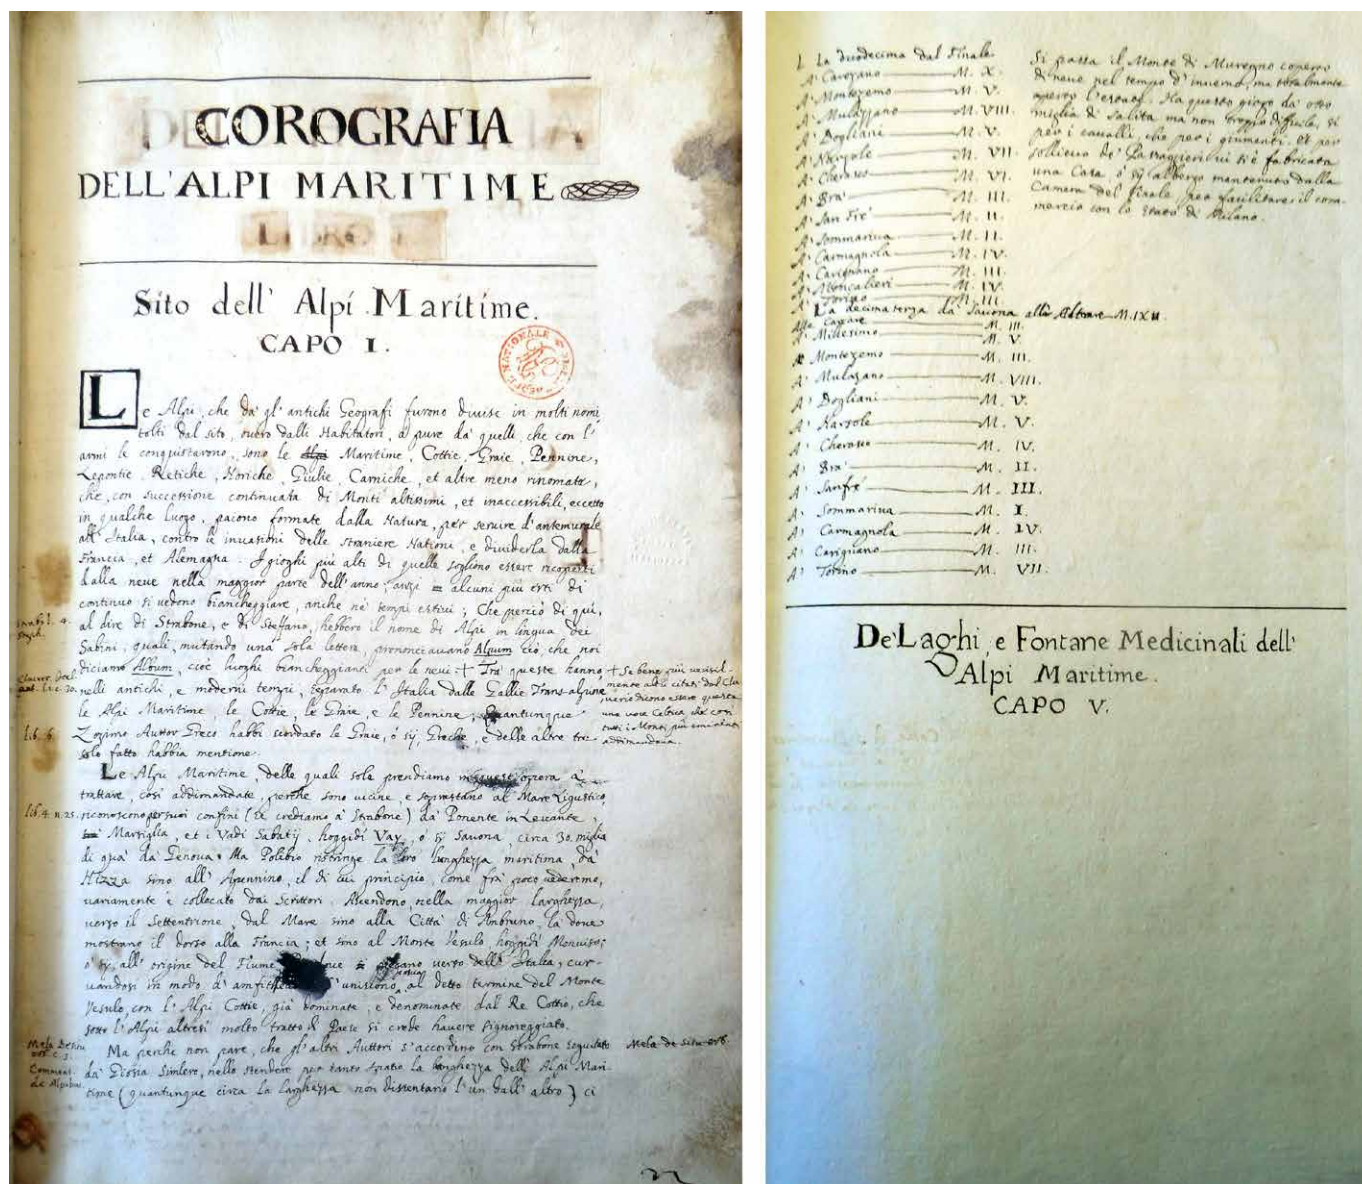 COROGRAFIA
DELL'ALPI MARITIME
LIBRO I
Sito dell' Alpi Maritime.
CAPO I.
Le Alpi, che da gl' antichi Geografi furono divise in molti nomi
tolti dal sito, overo dalli Habitatori, ò pure da quelli, che con l'
armi le conquistarono, sono le Alpi Maritime, Cottie, Graie, Pennine,
Lepontie, Retiche, Noriche, Giulie, Carniche, et altre meno rinomate,
che, con successione continuata di Monti altissimi, et inaccessibili, eccetto
in qualche luogo, paiono formate dalla Natura, per servire d'antemurale
all' Italia, contro le invasioni delle straniere Nationi, e dividerla dalla
Francia, et Alemagna. I gioghi più alti di quelle sogliono essere ricoperti
dalla neve nella maggior parte dell' anno; anzi alcuni più erti di
continuo si vedono biancheggiare, anche ne' tempi estivi; Che perciò di qui,
al dire di Strabone, e di Steffano, hebbero il nome di Alpi in lingua dei
Sabini, quali, mutando una sola lettera, prononciavano Alpum ciò, che noi
diciamo Album, cioè luoghi biancheggianti per le nevi + Tra queste hanno
nelli antichi, e moderni tempi, separato l' Italia dalle Gallie Trans-alpine
le Alpi Maritime, le Cottie, le Graie, e le Pennine; quantunque
Zozimo Auttor Greco habbi scordato le Graie, ò sij, Greche, e delle altre tre
solo fatto habbia mentione.
Strab. l. 4.
Steph.
lib. 6.
+ Se bene più verisil-
mente altri citati dal Clu
verio dicono essere questa
una voce Celtica che con
tutti i Monti più eminenti
addimandava.
Le Alpi Maritime, delle quali sola prendiamo in quest'opera à
trattare, così addimandate, perche sono vicine, e soprastano al Mare Ligustico,
riconoscono per suoi confini (se crediamo à Strabone) da Ponente in Levante,
Marsiglia, et i Vadi Sabatij, hoggidì Vay, ò sij Savona, circa 30. miglia
di quà da Genova. Ma Polibio ristringe la loro lunghezza maritima, da
Nizza sino all' Apennino, il di cui principio, come frà poco vederemo,
variamente è collocato dai Scrittori. Havendono, nella maggior larghezza,
verso il Settentrione, dal Mare sino alla Città di Ambruno, là dove
mostrano il dorso alla Francia; et sino al Monte Vesulo, hoggidì Monviso;
ò sij all' origine del Fiume verso dell' Italia, cur-
vandosi in modo d' unisono al detto termine del Monte
Vesulo, con l' Alpi Cottie, già dominate, e denominate dal Re Cottio, che
sotto l'Alpi altresì molto tratto di Paese si crede havere signoreggiato.
lib. 4. n. 25.
Ma perche non pare, che gl'altri Auttori s'accordino con Strabone seguitato
da Giosia Simlero, nello stendere per tanto spatio la lunghezza dell' Alpi Mari-
time (quantunque circa la larghezza non dissentano l'un dall' altro) ci
Mela de situ
orb. c. 3.
Comment.
de Alpibus.
Mela de situ orb.
La duodecima dal Finale
A' Carcano M. X.
A' Montezemo M. V.
A' Mulazzano M. VIII.
A' Dogliani M. V.
A' Narzole M. VII.
A' Cherasco M. VI.
A' Bra' M. III.
A' San Fre' M. II.
A' Sommariva M. II.
A' Carmagnola M. IV.
A' Carignano M. III.
A' Moncalieri M. IV.
A' Torino M. III.
Si passa il Monte di Muregno coperto
di neve nel tempo d' inverno, ma totalmente
aperto l'estate. Ha questo giogo da otto
miglia di salita ma non troppo difficile, si
per i cavalli, che per i giumenti. Et per
sollievo de' Passaggieri vi s'è fabricata
una Casa ò sij albergo mantenuto dalla
Camera del Finale, per facilitare il com-
mercio con lo Stato di Milano.
La decimaterza da Savona alla Altare M. IX
Alla Carcare M. III.
A' Millesimo M. V.
A' Montezemo M. III.
A' Mulazano M. VIII.
A' Dogliani M. V.
A' Narzole M. V.
A' Cherasco M. IV.
A' Bra' M. II.
A' Sanfré M. III.
A' Sommariva M. I.
A' Carmagnola M. IV.
A' Carignano M. III.
A' Torino M. VII.
De' Laghi, e Fontane Medicinali dell'
Alpi Maritime.
CAPO V.